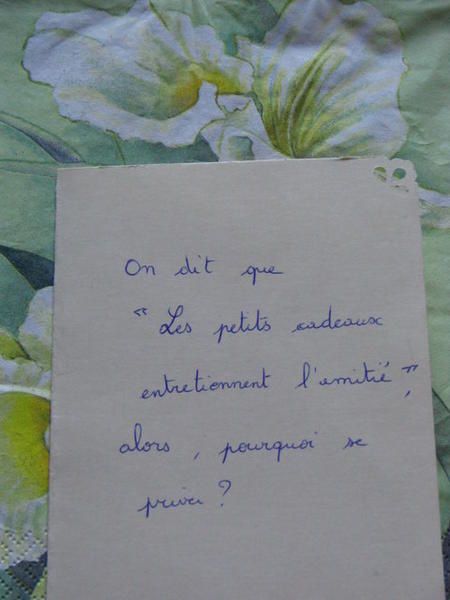 On dit que
" Les petits cadeaux
entretiennent l'amitié ",
alors , pourquoi se
priver ?